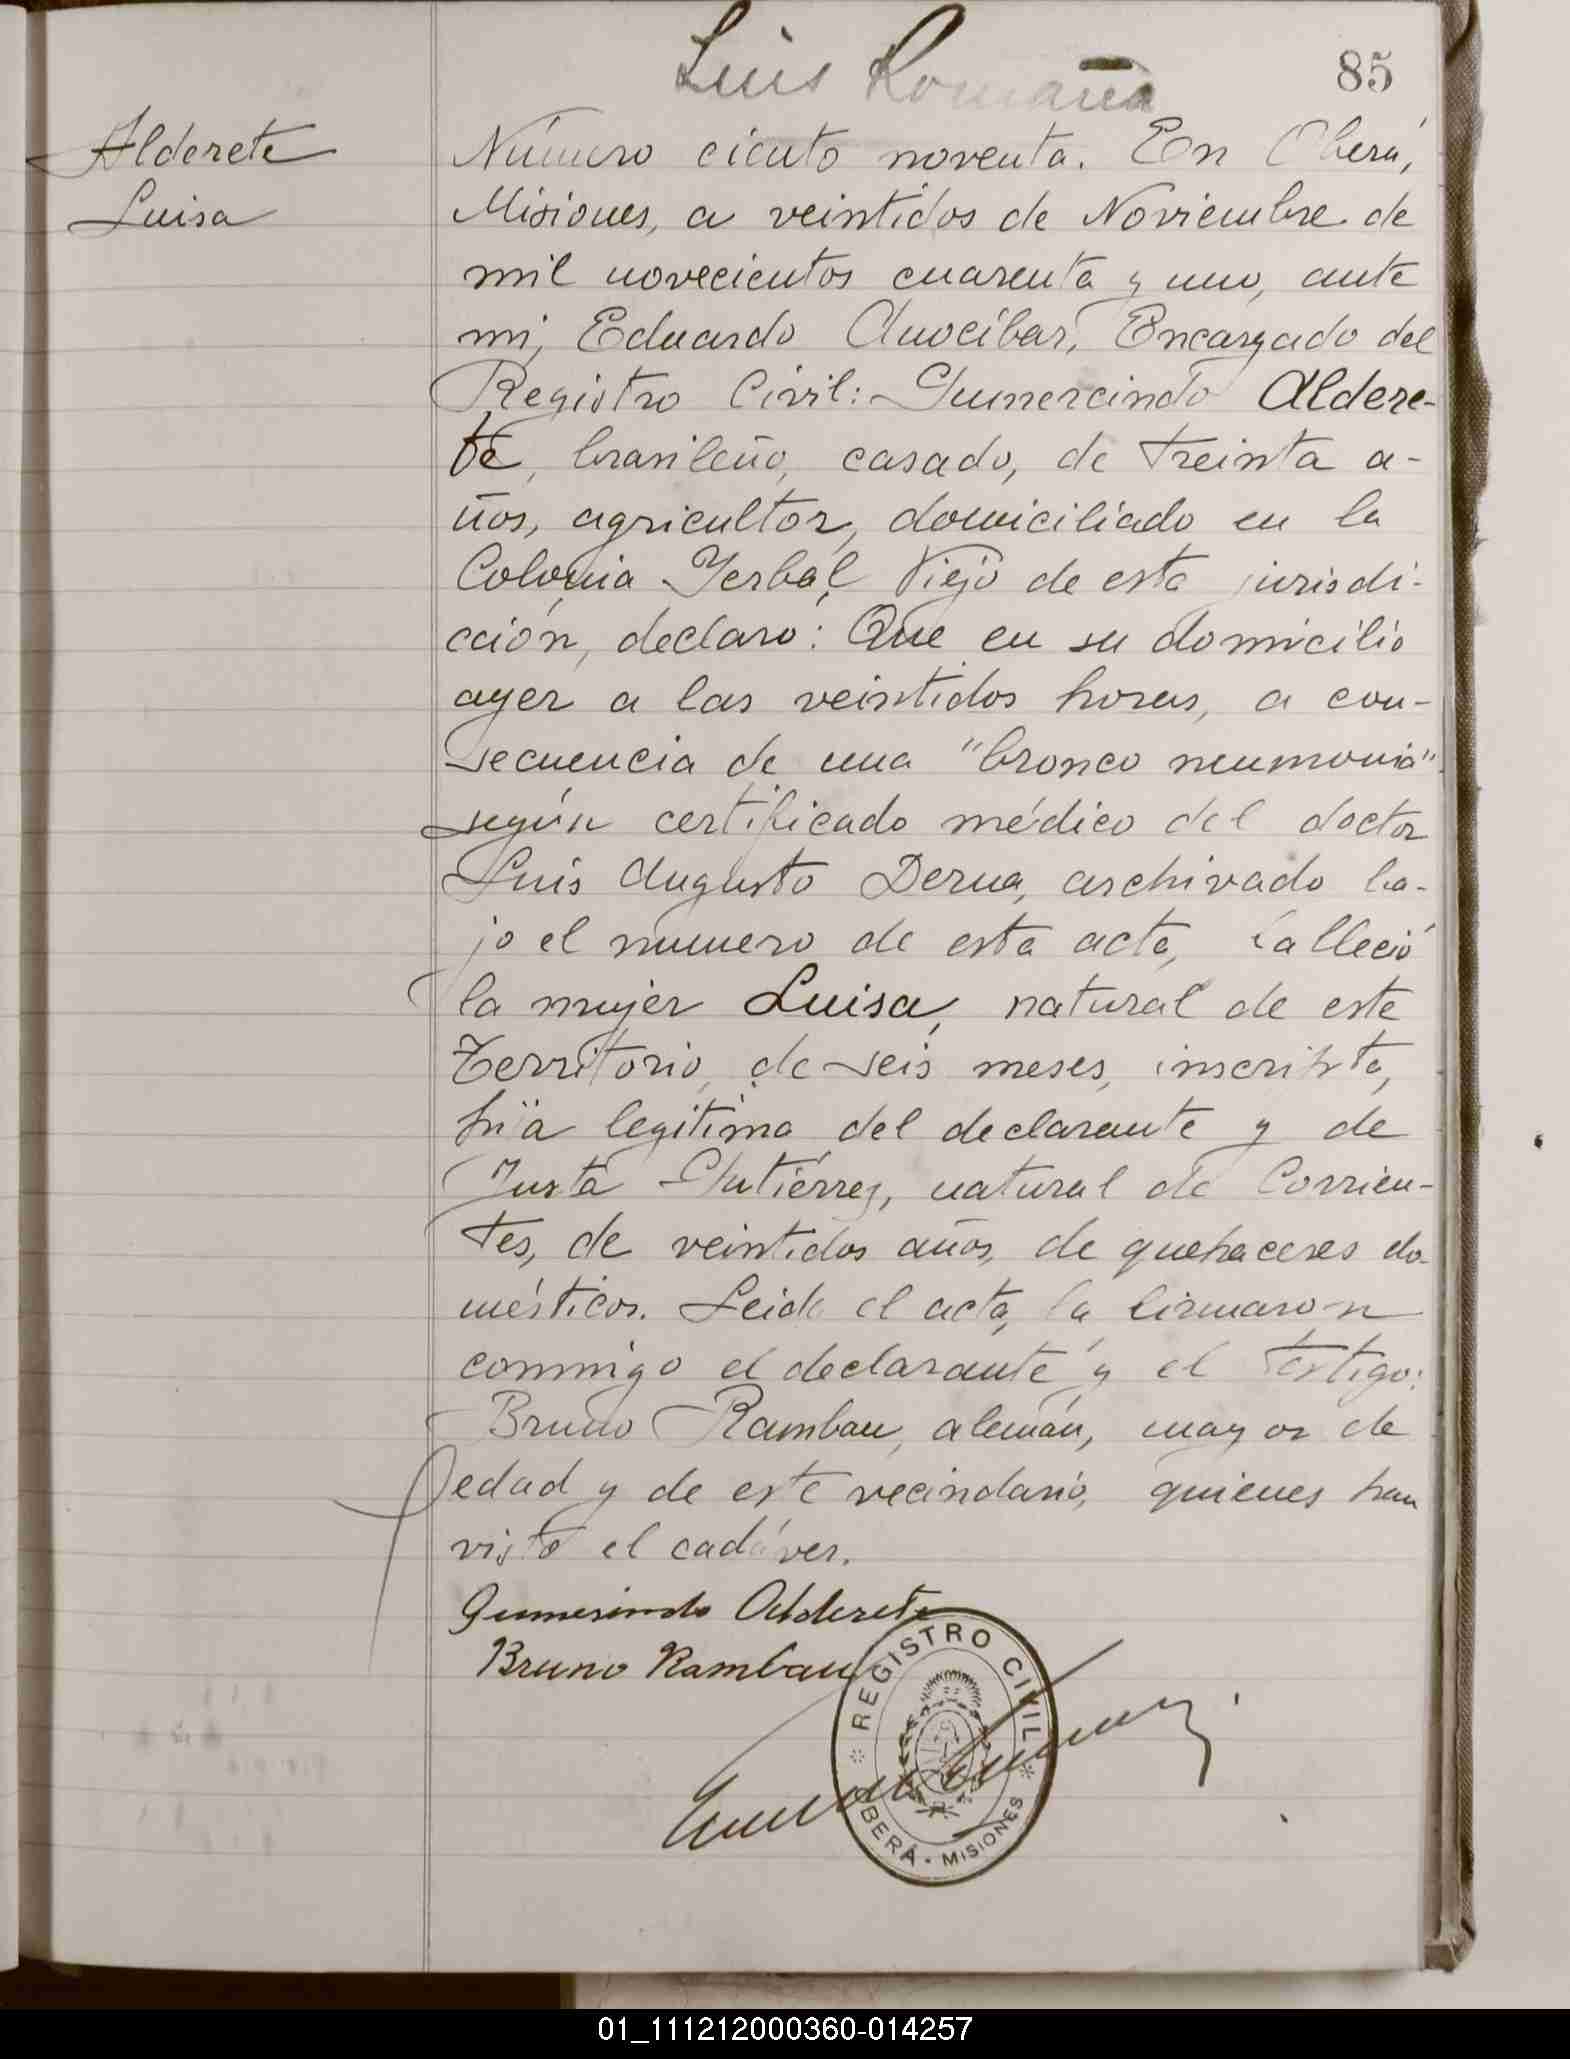 Luis Romaña
85
Alderete
Luisa
Número ciento noventa. En Oberá,
Misiones, a veintidos de Noviembre de
mil novecientos cuarenta y uno, ante
mi, Eduardo Anocíbar, Encargado del
Registro Civil: Gumercindo Aldere-
te, brasileño, casado, de treinta a-
ños, agricultor, domiciliado en la
Colonia Yerbal Viejo de esta jurisdi-
cción, declaro: Que en su domicilio
ayer a las veintidos horas, a con-
secuencia de una "bronco neumonia"
según certificado médico del doctor
Luis Augusto Derna, archivado ba-
jo el numero de esta acta, falleció
la mujer Luisa, natural de este
Territorio, de seis meses, inscripta,
hija legítima del declarante y de
Justa Gutiérrez, natural de Corrien-
tes, de veintidos años, de quehaceres do-
mésticos. Leida el acta, la firmaron
conmigo el declarante y el testigo:
Bruno Rambau, alemán, mayor de
edad y de este vecindario, quienes han
visto el cadáver.
Gumersindo Alderete
Bruno Rambau
REGISTRO CIVIL
OBERÁ - MISIONES
01_111212000360-014257